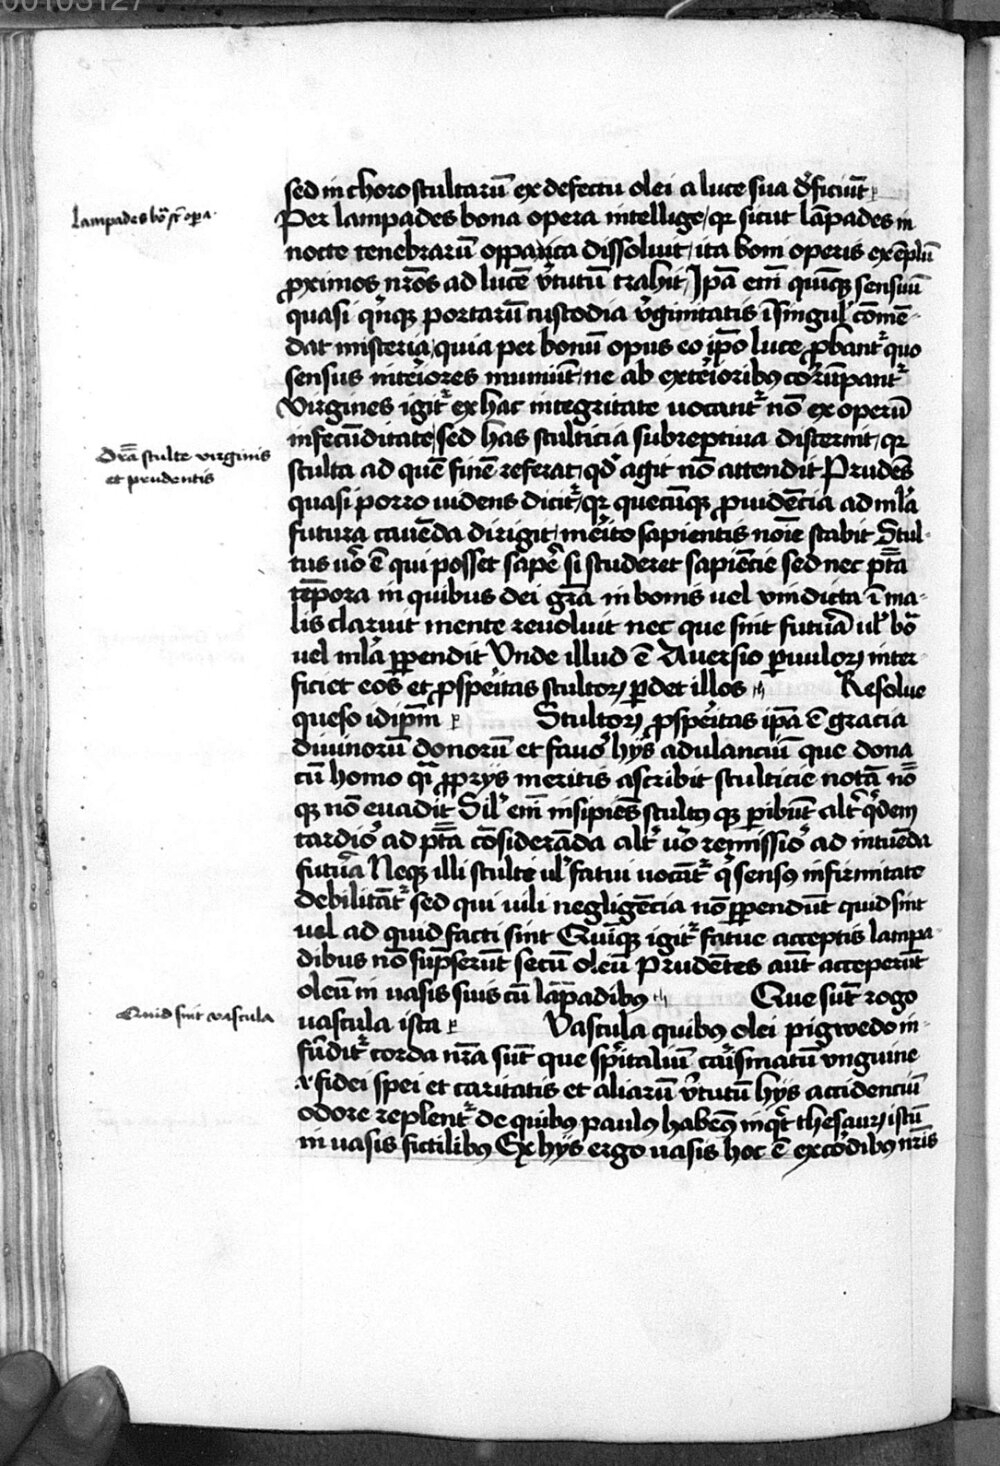 00103127
sed in choro stultarū ex defectu olei a luce sua dɇficiūt
Lampades bo᷑ st᷑ oꝑa
Per lampades bona opera intellige / qꝛ sicut lāpades in
nocte tenebrarū oppanita dissoluit / ita boni operis exēplū
ꝓximos nr̄os ad lucē v̾tutū trahit / Ip̄a em̄ quīqꝫ sensuū
quasi qͥnqꝫ portarū custodia v̾ginitatis ī singul̾ cōmē-
dat misteria / quia per bonū opus eo ip̄o luce ꝓbant᷑ quo
sensus inte̾iores muniūt / ne ab exte̾ioribꝯ corrūpant᷑
Virgines igit᷑ ex hac integritate uocant᷑ nō ex operū
infecūditate / sed has stulticia subreptiua discernit / qꝛ
Dr̄a stulte virginis
et prudentis
stulta ad quē finē referat / qd̾ agit nō attendit Prudēs
quasi porro uidens dicit᷑ / qꝛ quecūqꝫ ꝓuidēcia ad ml̾a
futura cauēda dirigit / me̾ito sapientis noīe stabit Stul-
tus uͦ ē qui posset sape̾ si studeret sapiēcie sed nec pt̄a
tēpora in quibus dei gr̄a in bonis uel vindicta ī ma-
lis claruit mente reuoluit nec que sint futura ul̾ bō
uel ml̾a ꝑpendit Vnde illud ē Auersio ꝑuuloꝝ inter-
ficiet eos et ꝓspe̾itas stultoꝝ ꝑdet illos Resolue
queso idip̄m Stultoꝝ ꝓspe̾itas ip̄a ē gracia
diuinorū donorū et fauor hys adulanciū que dona
cū homo qͣ ꝓprys meritis ascribit stulticie notā nō
qꝫ nō euadit Sil̾ em̄ insipiēs stultꝯ qꝫ ꝑibūt alt̾ qͥdem
tardio̾ ad pt̄a cōsiderāda alt̾ uͦ remissio̾ ad intuēda
futura Neqꝫ illi stulte ul̾ fatui uocāt᷑ qͥ sensꝯ infirmitate
debilitāt᷑ sed qui uili negligēcia nō ꝑpendūt quid sint
uel ad quid facti sint Quīqꝫ igit᷑ fatue acceptis lampa-
dibus nō sūpserūt secū oleū Prudētes aut̄ acceperūt
oleū in uasis suis cū lāpadibꝯ Que sūt rogo
Quid sint vascula
uascula ista Vascula quibꝯ olei pigwedo in-
fūdit᷑ corda nr̄a sūt que sp̄italiū carismatū vnguine
⁊ fidei spei et caritatis et aliarū v̾tutū hys accidenciū
odore replent᷑ de quibꝯ paulꝯ habem̄ꝯ inqͥt thesauꝝ istū
in uasis fictilibꝯ Ex hys ergo uasis hoc ē ex cordibꝯ nr̄is